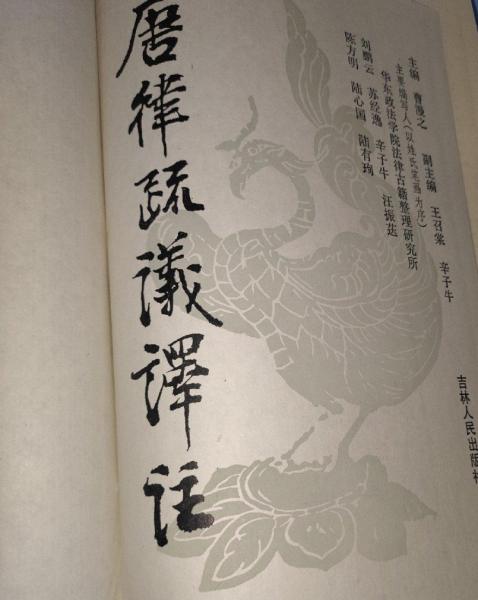 唐律疏議譯註
主编 曹漫之 副主编 王召棠 辛子牛
主要编写人（以姓氏笔画为序）
华东政法学院法律古籍整理研究所
刘鹏云 苏经逸 辛子牛 汪振荭
陈方明 陆心国 陆有珣
吉林人民出版社